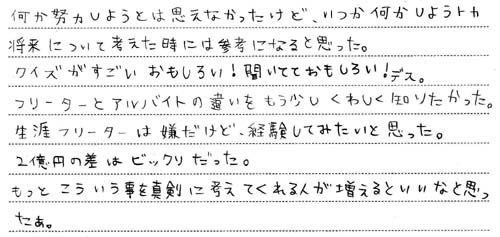 何か努力しようとは思えなかったけど、いつか何かしようトカ
将来について考えた時には参考になると思った。
クイズがすごいおもしろい！聞いてておもしろい！デス。
フリーターとアルバイトの違いをもう少しくわしく知りたかった。
生涯フリーターは嫌だけど、経験してみたいと思った。
2億円の差はビックリだった。
もっとこういう事を真剣に考えてくれる人が増えるといいなと思っ
たぁ。